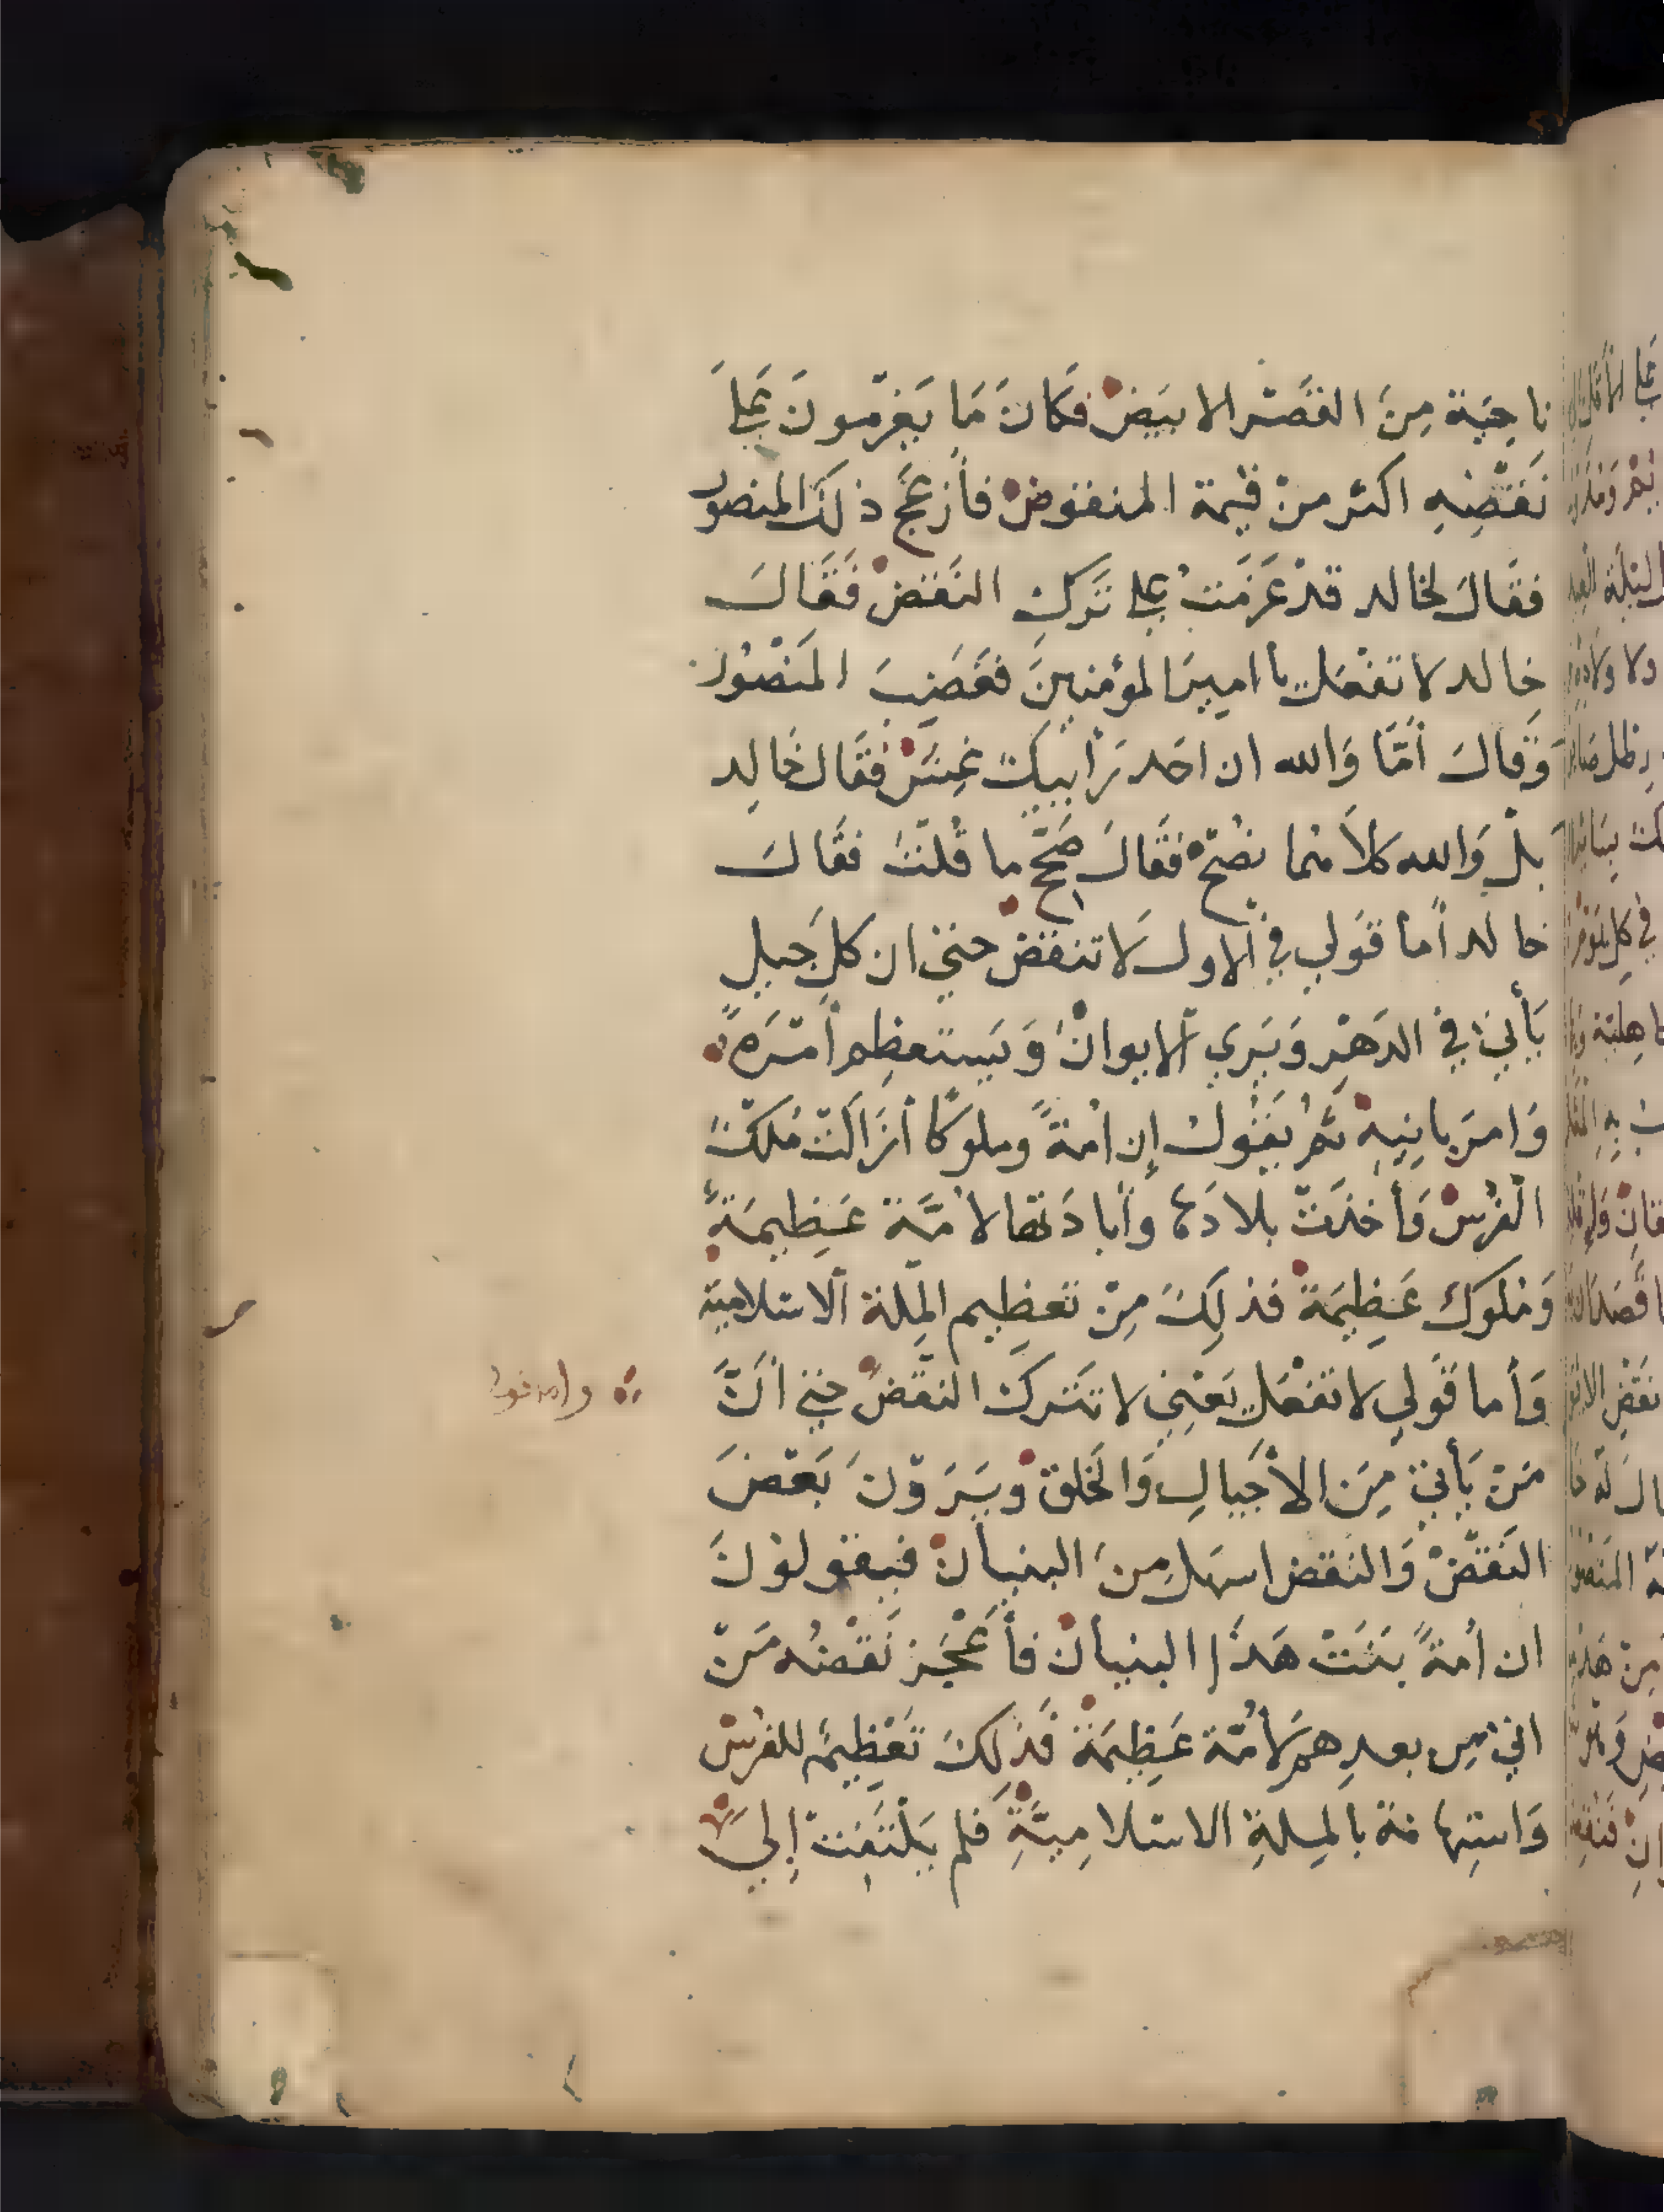 ناحِيَة مِنَ القَصْر الابيَض فكَانَ مَا يَغرمُونَ عَلىَ
نَقضِهِ اكثر من قيمة المنقوض فأزعَج ذلكَ المنصور
فقَالَ لخالد قد عَزمَتُ على تَركِ النَقض فَقَالَ
خالد لا تفعَل يا اميرَ المؤمنينَ فغَضِبَ المَنصُور
وَقالَ أمَّا وَالله ان احَد رَأييكَ غِش فقَال خَالِد
بلْ وَالله كلاَهما نصْح فقَالَ صَحِّح ما قُلتَ فقَالَ
خالد أما قَولي في الاول لا تنقض حتى ان كل جيل
يَأتي في الدَهر وَيَرى الايوانَ وَيَستعظِم أمْرَهُ
وَامرَ بانِيهِ ثمَّ يَقُولُ إن امةً وملوكًا أزَالَتْ مُلكَ
الفُرس وَأخذَتْ بلادَها وأبادَتها لامَّة عَظِيمَةٌ
وَمُلوك عَظِيمَة فذلِكَ مِنْ تعظِيم المِلة الاسْلامية
وَأما قَولي لا تفعَل يَعْنِي لا تَترك النقْض حتى أنَّ
مَنْ يَأتي مِنَ الأجيالِ وَالخَلق وَيَرَوْنَ بَعْضَ
النَقْض وَالنقض اسهَل مِنَ البنيان فيقولونَ
ان أمةً بَنَتْ هَذا البنيان فأعْجَز نَقْضُه مَنْ
اتى مِن بعدِهم لأمَّة عَظِيمَة فَذلِكَ تَعْظِيم للفرس
وَاستِهانة بالمِلةِ الاسْلامِيَّةِ فلم يَلتَفِتْ إلى